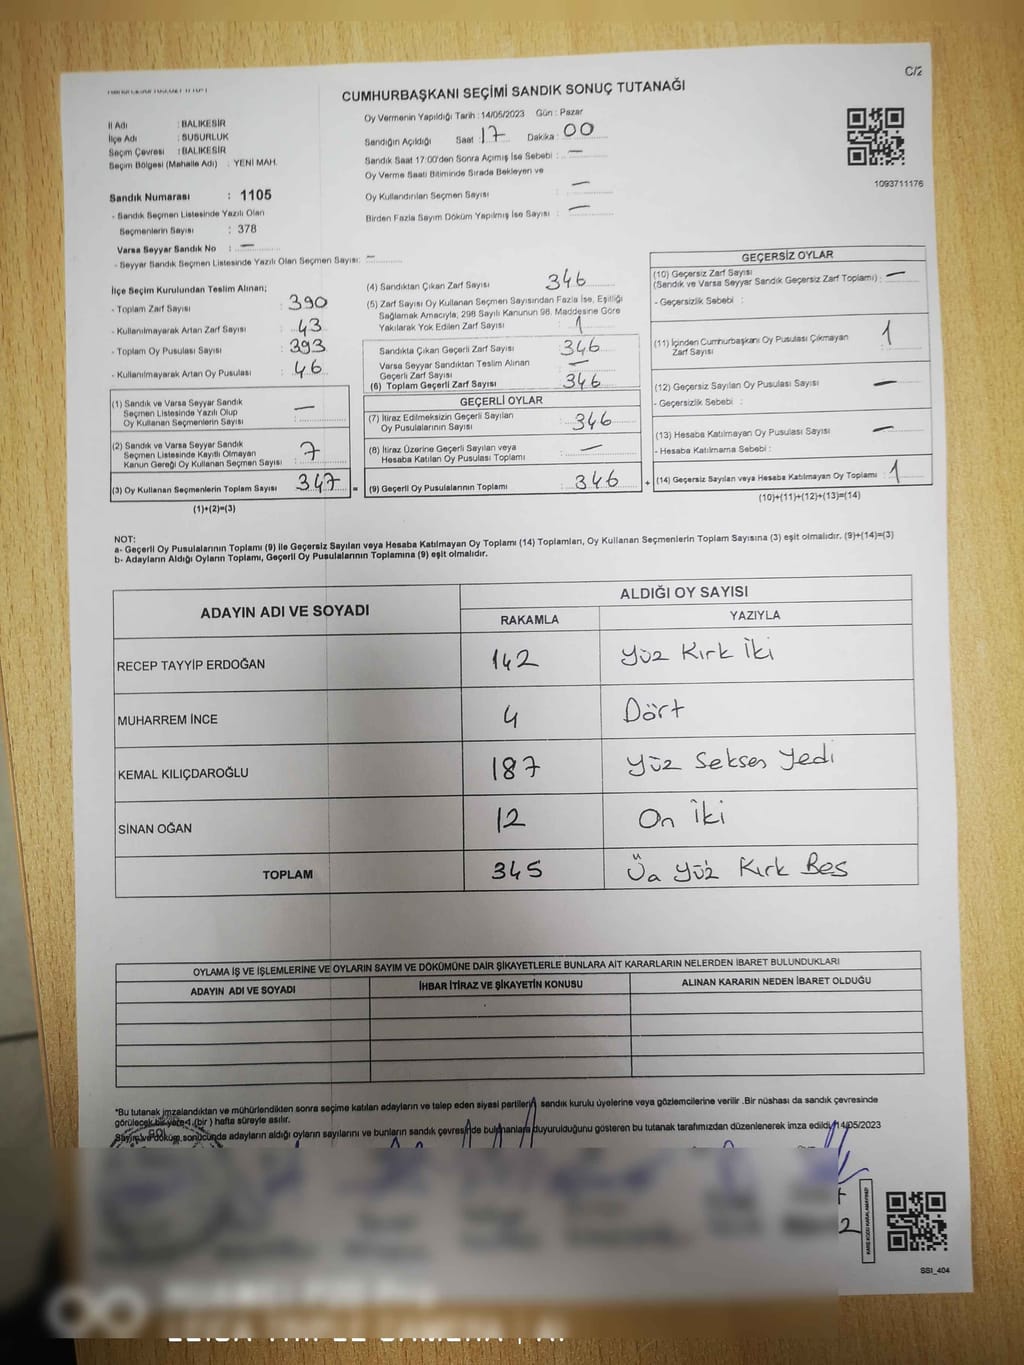 C/2
CUMHURBAŞKANI SEÇİMİ SANDIK SONUÇ TUTANAĞI
İl Adı : BALIKESİR
İlçe Adı : SUSURLUK
Seçim Çevresi : BALIKESİR
Seçim Bölgesi (Mahalle Adı) : YENİ MAH.
Sandık Numarası : 1105
- Sandık Seçmen Listesinde Yazılı Olan
Seçmenlerin Sayısı : 378
Varsa Seyyar Sandık No : —
- Seyyar Sandık Seçmen Listesinde Yazılı Olan Seçmen Sayısı : —
Oy Vermenin Yapıldığı Tarih : 14/05/2023 Gün : Pazar
Sandığın Açıldığı Saat : 17 Dakika : 00
Sandık Saat 17:00'den Sonra Açımış İse Sebebi : —
Oy Verme Saati Bitiminde Sırada Bekleyen ve
Oy Kullandırılan Seçmen Sayısı : —
Birden Fazla Sayım Döküm Yapılmış İse Sayısı : —
1093711176
İlçe Seçim Kurulundan Teslim Alınan;
- Toplam Zarf Sayısı : 390
- Kullanılmayarak Artan Zarf Sayısı : 43
- Toplam Oy Pusulası Sayısı : 393
- Kullanılmayarak Artan Oy Pusulası : 46
(1) Sandık ve Varsa Seyyar Sandık
Seçmen Listesinde Yazılı Olup
Oy Kullanan Seçmenlerin Sayısı : —
(2) Sandık ve Varsa Seyyar Sandık
Seçmen Listesinde Kayıtlı Olmayan
Kanun Gereği Oy Kullanan Seçmen Sayısı : 7
(3) Oy Kullanan Seçmenlerin Toplam Sayısı : 347
(1)+(2)=(3)
(4) Sandıktan Çıkan Zarf Sayısı : 346
(5) Zarf Sayısı Oy Kullanan Seçmen Sayısından Fazla İse, Eşitliği
Sağlamak Amacıyla, 298 Sayılı Kanunun 98. Maddesine Göre
Yakılarak Yok Edilen Zarf Sayısı : 1
Sandıkta Çıkan Geçerli Zarf Sayısı : 346
Varsa Seyyar Sandıktan Teslim Alınan
Geçerli Zarf Sayısı : —
(6) Toplam Geçerli Zarf Sayısı : 346
GEÇERLİ OYLAR
(7) İtiraz Edilmeksizin Geçerli Sayılan
Oy Pusulalarının Sayısı : 346
(8) İtiraz Üzerine Geçerli Sayılan veya
Hesaba Katılan Oy Pusulası Toplamı : —
= (9) Geçerli Oy Pusulalarının Toplamı : 346 +
GEÇERSİZ OYLAR
(10) Geçersiz Zarf Sayısı
(Sandık ve Varsa Seyyar Sandık Geçersiz Zarf Toplamı) : —
- Geçersizlik Sebebi :
(11) İçinden Cumhurbaşkanı Oy Pusulası Çıkmayan
Zarf Sayısı : 1
(12) Geçersiz Sayılan Oy Pusulası Sayısı : —
- Geçersizlik Sebebi :
(13) Hesaba Katılmayan Oy Pusulası Sayısı : —
- Hesaba Katılmama Sebebi :
(14) Geçersiz Sayılan veya Hesaba Katılmayan Oy Toplamı : 1
(10)+(11)+(12)+(13)=(14)
NOT:
a- Geçerli Oy Pusulalarının Toplamı (9) ile Geçersiz Sayılan veya Hesaba Katılmayan Oy Toplamı (14) Toplamları, Oy Kullanan Seçmenlerin Toplam Sayısına (3) eşit olmalıdır. (9)+(14)=(3)
b- Adayların Aldığı Oyların Toplamı, Geçerli Oy Pusulalarının Toplamına (9) eşit olmalıdır.
ADAYIN ADI VE SOYADI ALDIĞI OY SAYISI
RAKAMLA YAZIYLA
RECEP TAYYİP ERDOĞAN 142 Yüz Kırk İki
MUHARREM İNCE 4 Dört
KEMAL KILIÇDAROĞLU 187 Yüz Seksen Yedi
SİNAN OĞAN 12 On İki
TOPLAM 345 Üç Yüz Kırk Beş
OYLAMA İŞ VE İŞLEMLERİNE VE OYLARIN SAYIM VE DÖKÜMÜNE DAİR ŞİKAYETLERLE BUNLARA AİT KARARLARIN NELERDEN İBARET BULUNDUKLARI
ADAYIN ADI VE SOYADI İHBAR İTİRAZ VE ŞİKAYETİN KONUSU ALINAN KARARIN NEDEN İBARET OLDUĞU
*Bu tutanak imzalandıktan ve mühürlendikten sonra seçime katılan adayların ve talep eden siyasi partilerin sandık kurulu üyelerine veya gözlemcilerine verilir .Bir nüshası da sandık çevresinde
görülecek bir yere 1 (bir ) hafta süreyle asılır.
Sayım ve döküm sonucunda adayların aldığı oyların sayılarını ve bunların sandık çevresinde bulunanlara duyurulduğunu gösteren bu tutanak tarafımızdan düzenlenerek imza edildi. 14/05/2023
SSI_404